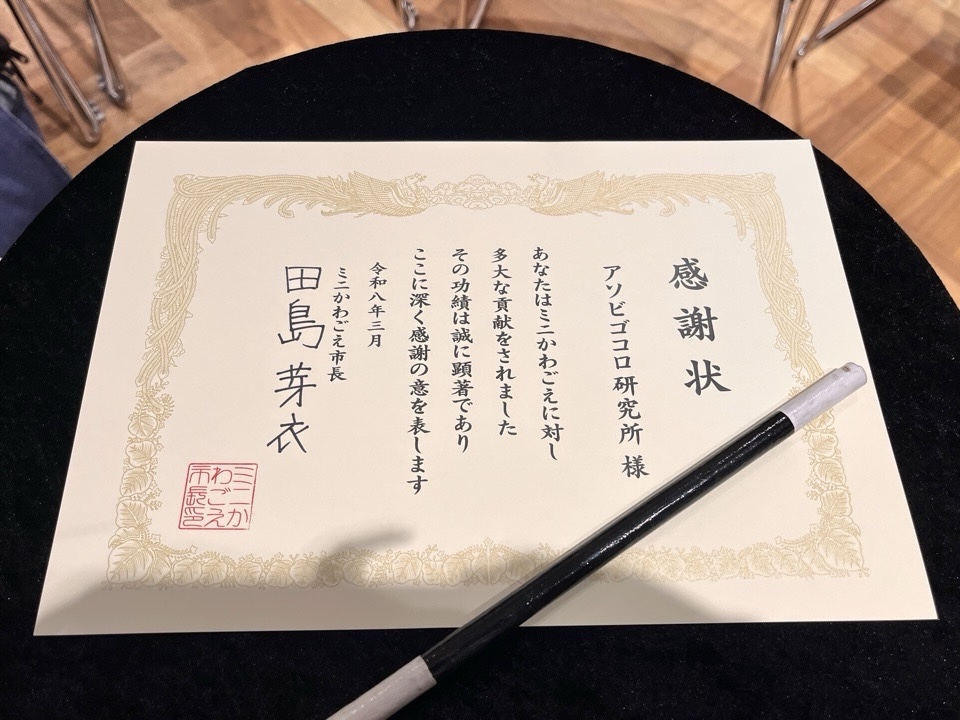 感謝状
アソビゴコロ研究所 様
あなたはミニかわごえに対し
多大な貢献をされました
その功績は誠に顕著であり
ここに深く感謝の意を表します
令和八年三月
ミニかわごえ市長
田島 芽衣
ミニか
わごえ
市長印